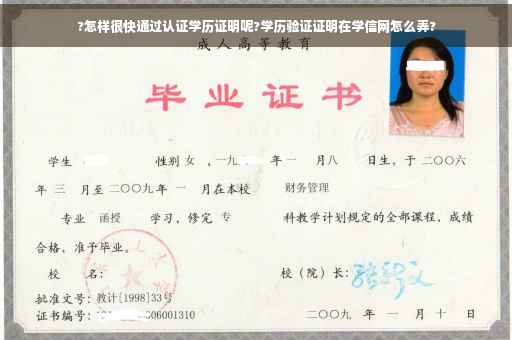 ?怎样很快通过认证学历证明呢?学历验证证明在学信网怎么弄?
成人高等教育
毕业证书
学生 性别 女 ,一九 年 一 月 八 日生,于 二〇〇六
年 三 月至 二〇〇九 年 一 月在本校 财务管理
专业 函授 学习,修完 专 科教学计划规定的全部课程,成绩
合格,准予毕业。
校 名: 校(院)长:
批准文号:教计[1998]33号
证书编号: 06001310 二〇〇九 年 一 月 十 日